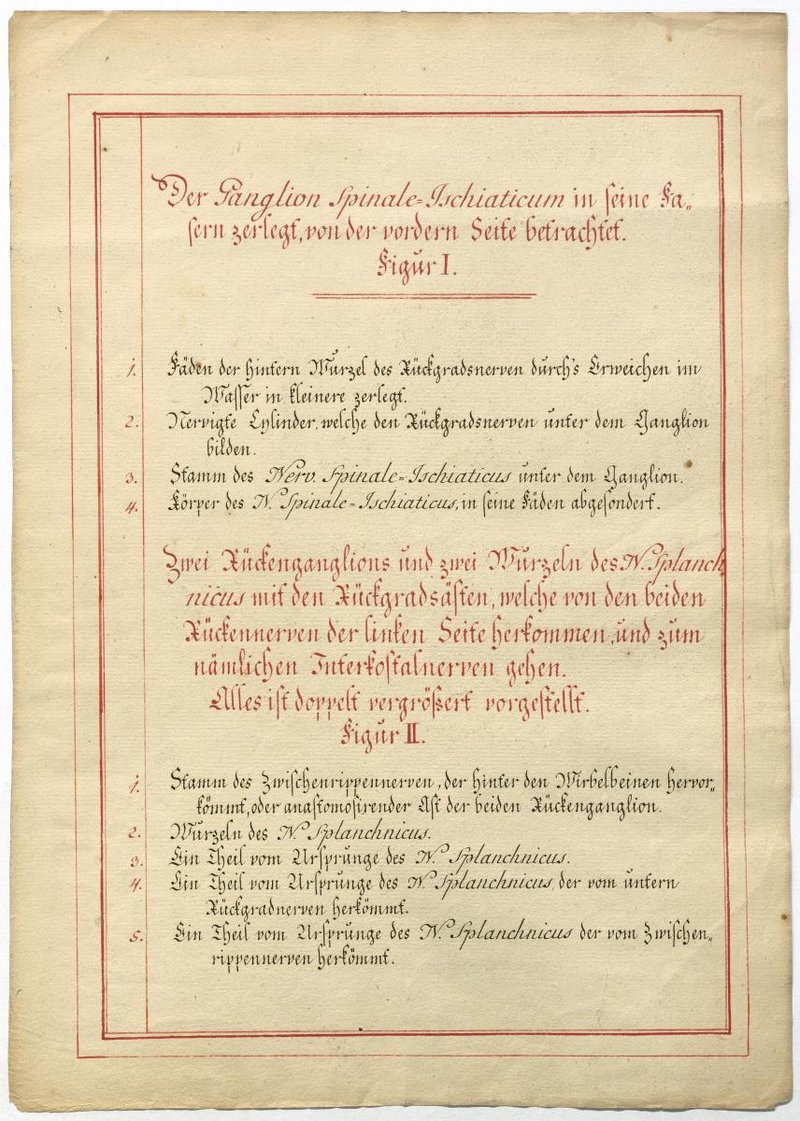 Der Ganglion Spinale=Ischiaticum in seine Fa„
sern zerlegt, von der vordern Seite betrachtet.
Figur I.
1. Fäden der hintern Wurzel des Rückgradsnerven durch's Erweichen im
Wasser in kleinere zerlegt.
2. Nervigte Cylinder, welche den Rückgradsnerven unter dem Ganglion
bilden.
3. Stamm des Nerv. Spinale=Ischiaticus unter dem Ganglion.
4. Körper des N. Spinale=Ischiaticus, in seine Fäden abgesondert.
Zwei Rückenganglions und zwei Wurzeln des N. Splanch
nicus mit den Rückgradsästen, welche von den beiden
Rückennerven der linken Seite herkommen, und zum
nämlichen Interkostalnerven gehen.
Alles ist doppelt vergrößert vorgestellt.
Figur II.
1. Stamm des Zwischenrippennerven, der hinter den Wirbelbeinen hervor„
kömmt, oder anastomosirender Ast der beiden Rückenganglion.
2. Wurzeln des N. Splanchnicus.
3. Ein Theil vom Ursprunge des N. Splanchnicus.
4. Ein Theil vom Ursprunge des N. Splanchnicus, der vom untern
Rückgradnerven herkömmt.
5. Ein Theil vom Ursprunge des N. Splanchnicus der vom Zwischen„
rippennerven herkömmt.